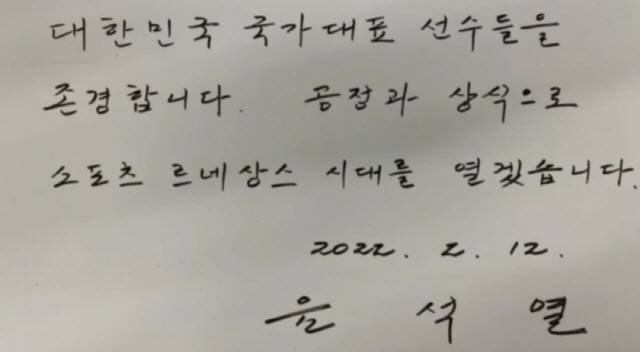 대한민국 국가대표 선수들을
존경합니다. 공정과 상식으로
스포츠 르네상스 시대를 열겠습니다.
2022. 2. 12.
윤석열